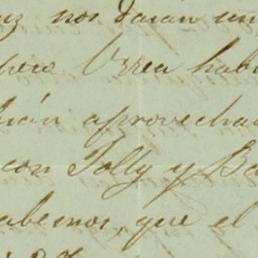 nos darán un
pero Urrea habi
aprovecha
con Tolly y Ba
abemos, que el